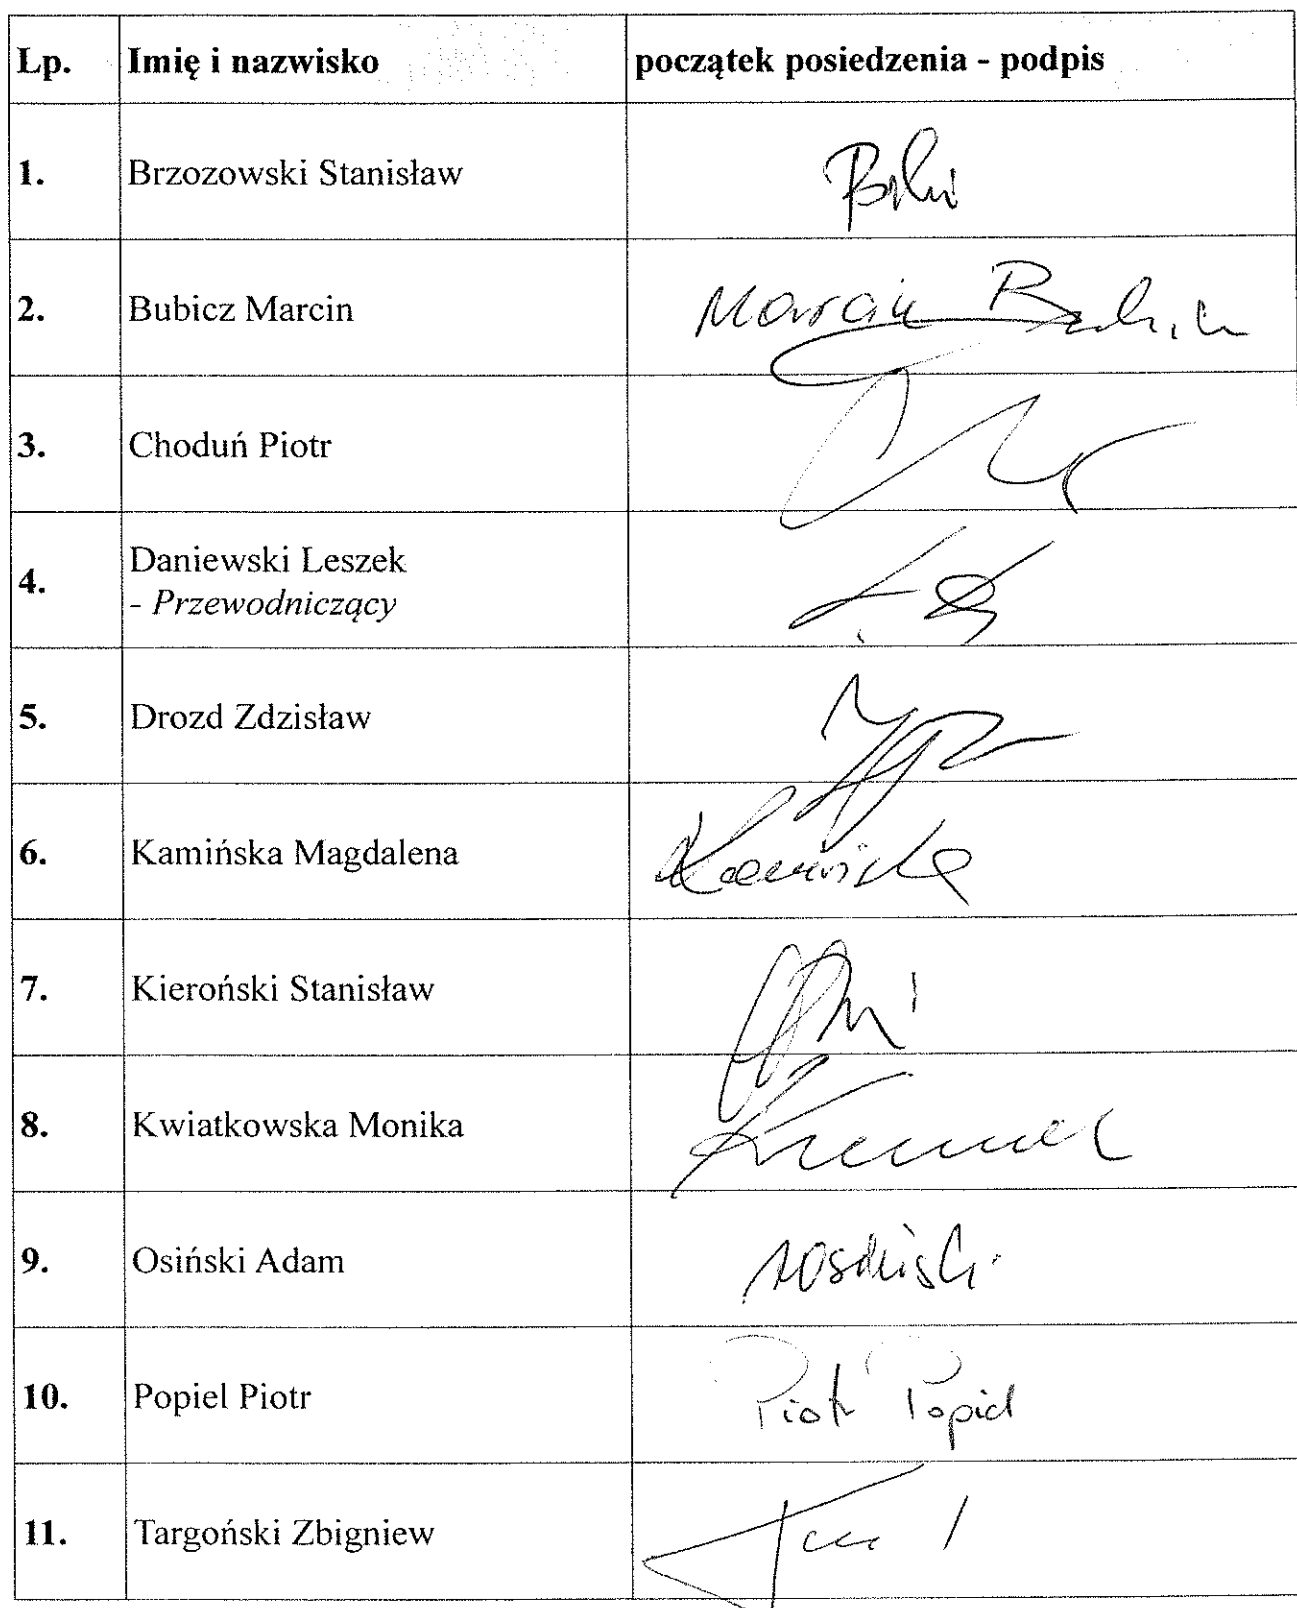 Lp. Imię i nazwisko początek posiedzenia - podpis
1. Brzozowski Stanisław
2. Bubicz Marcin Marcin Bubicz
3. Choduń Piotr
4. Daniewski Leszek
- Przewodniczący
5. Drozd Zdzisław
6. Kamińska Magdalena Kamińska
7. Kieroński Stanisław
8. Kwiatkowska Monika
9. Osiński Adam AOsiński
10. Popiel Piotr Piotr Popiel
11. Targoński Zbigniew